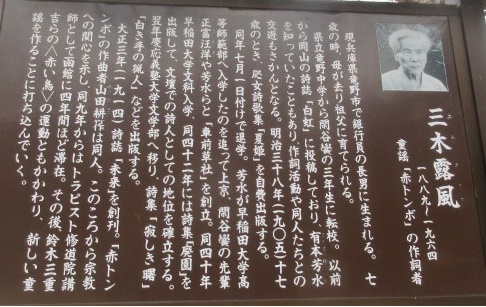 三木露風
一八八九～一九六四
童謡「赤トンボ」の作詞者
現兵庫県竜野市で銀行員の長男に生まれる。七
歳の時、母が去り祖父に育てられる。
県立竜野中学から閑谷黌の三年生に転校。以前
から岡山の詩誌「白虹」に投稿しており、有本芳水
を知っていたこともあり、作詞活動や同人たちとの
交遊もさかんとなる。明治三十八年(一九〇五)十七
歳のとき、処女詩歌集『夏姫』を自費出版する。
同年七月一日付けで退学。芳水が早稲田大学高
等師範部へ入学したのを追って上京、閑谷黌の先輩
正富汪洋や芳水らと「車前草社」を創立。同四十年
早稲田大学文科入学、同四十二年には詩集『廃園』を
出版して、文壇での詩人としての地位を確立する。
翌年慶応義塾大学文学部へ移り、詩集『寂しき曙』
『白き手の猟人』などを出版する。
大正三年(一九一四)詩誌『未来』を創刊。「赤トン
ンボ」の作曲者山田耕作は同人。このころから宗教
への関心を示し、同九年からはトラピスト修道院講
師として函館に四年間ほど滞在。その後、鈴木三重
吉らの〈赤い鳥〉の運動ともかかわり、新しい童
謡を作ることに打ち込んでいく。